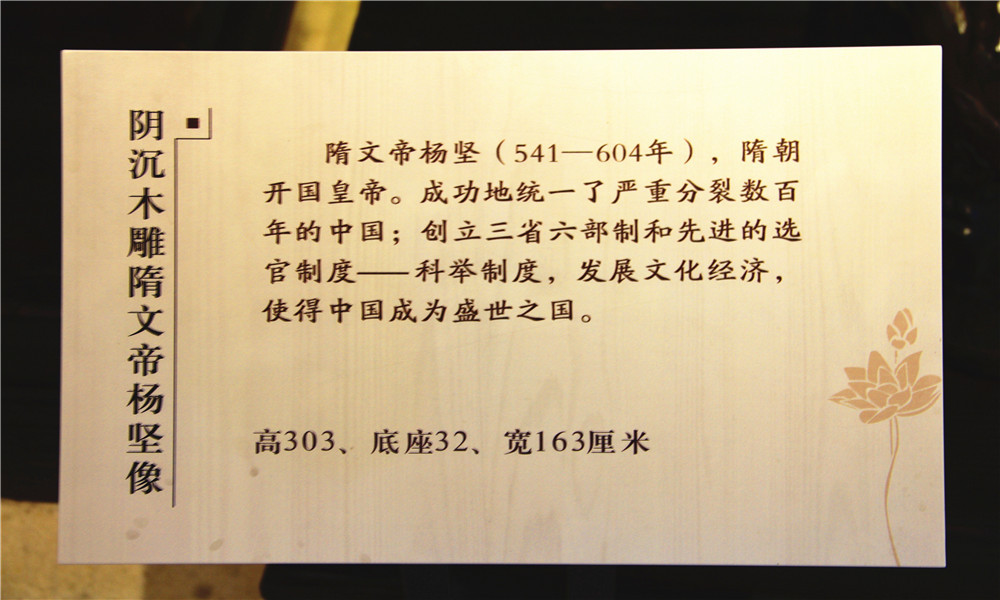 阴沉木雕隋文帝杨坚像
隋文帝杨坚（541—604年），隋朝
开国皇帝。成功地统一了严重分裂数百
年的中国；创立三省六部制和先进的选
官制度——科举制度，发展文化经济，
使得中国成为盛世之国。
高303、底座32、宽163厘米